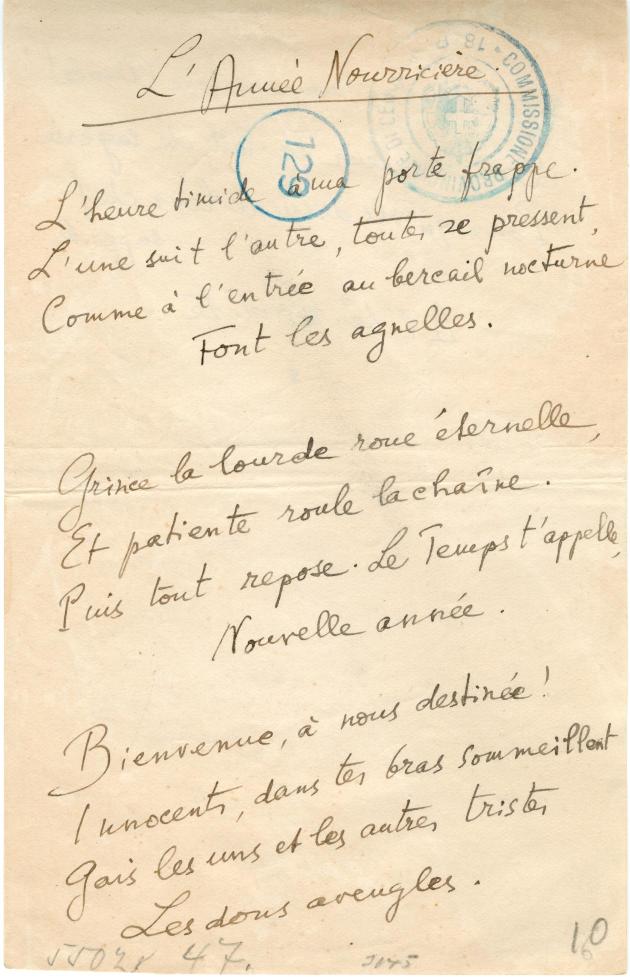 L'Année Nourricière.
129
COMMISSIONE PROVINCIALE DI CE
18
L'heure timide à ma porte frappe.
L'une suit l'autre, toutes se pressent,
Comme à l'entrée au bercail nocturne
Font les agnelles.
Grince la lourde roue éternelle,
Et patiente roule la chaîne.
Puis tout repose. Le Temps t'appelle,
Nouvelle année.
Bienvenue, à nous destinée!
Innocents, dans tes bras sommeillent
Gais les uns et les autres tristes
Les dons aveugles.
47.
10